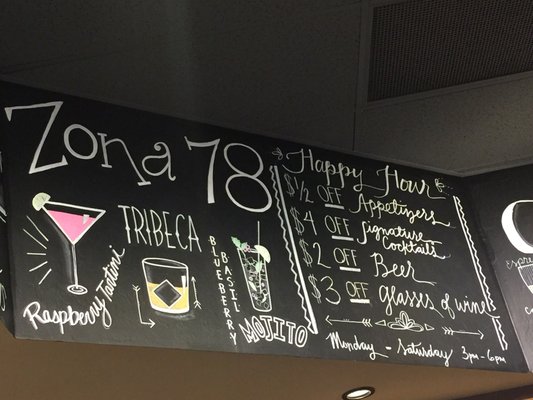 Zona 78
Raspberry
TRIBECA
BLUEBERRY
BASIL
MOJITO
Happy Hour
$1/2 OFF Appetizers
$4 OFF Signature
Cocktails
$2 OFF Beer
$3 OFF glasses of wine
Monday - Saturday 3pm-6pm